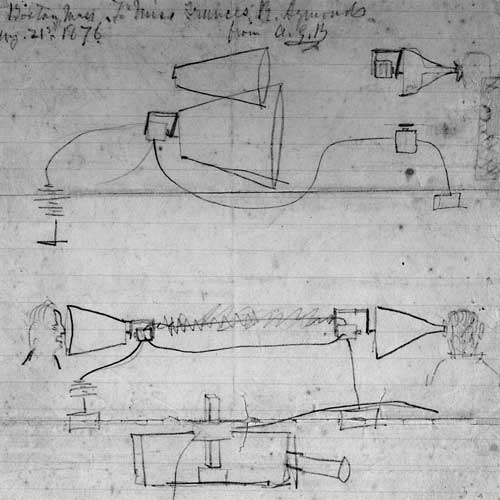 Boston, Mass. To Miss Frances R. Symonds
Aug. 21st 1876 from A.G.B